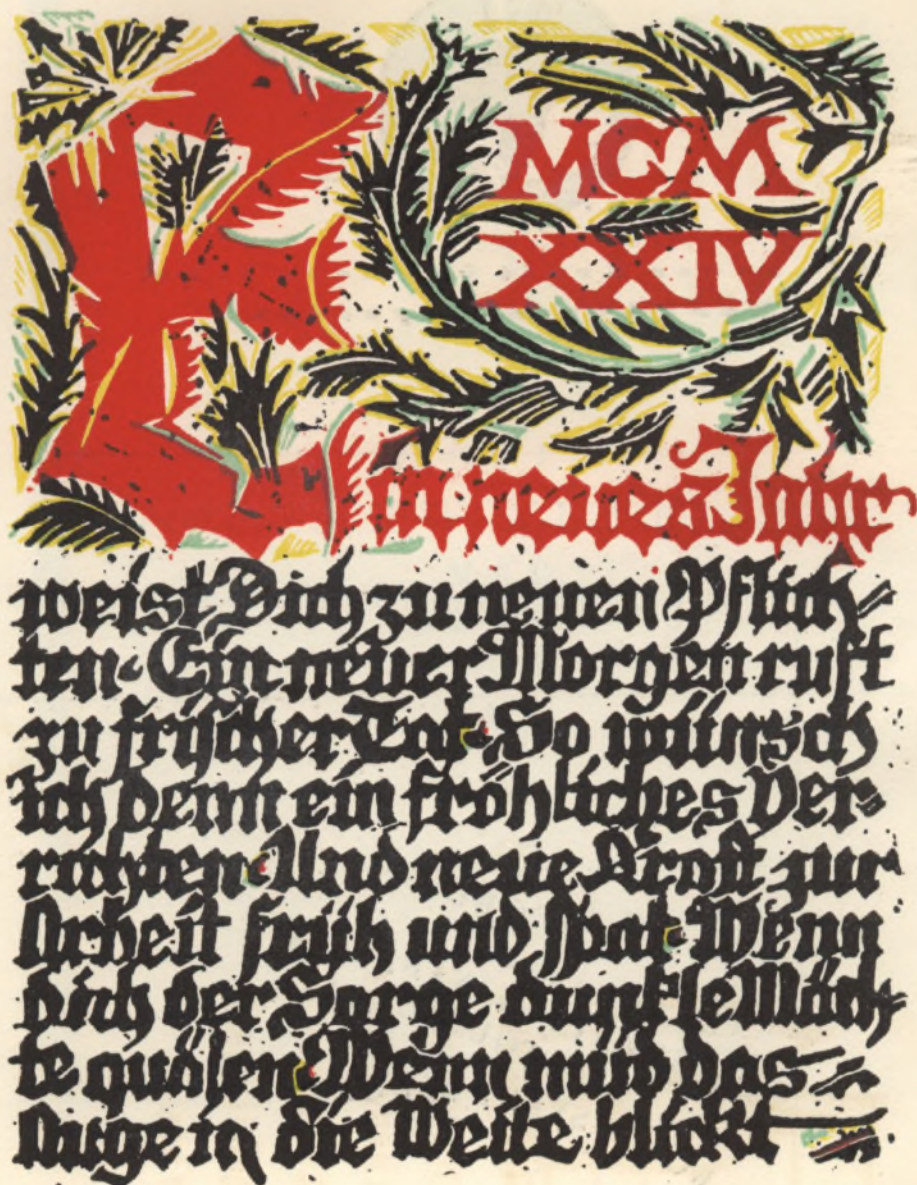 MCM
XXIV
Ein neues Jahr
weist Dich zu neuen Pflich-
ten. Ein neuer Morgen ruft
zu frischer Tat. So wünsch
ich denn ein fröhliches Ver-
richten. Und neue Kraft zur
Arbeit früh und spat. Wenn
dich der Sorge dunkle Mäch-
te quälen. Wenn müd das
Auge in die Weite blickt